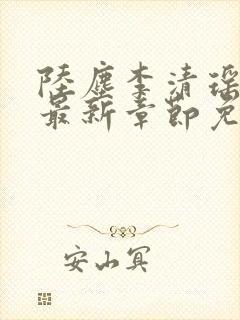 陆尘李清瑶
最新章节免
安山冥